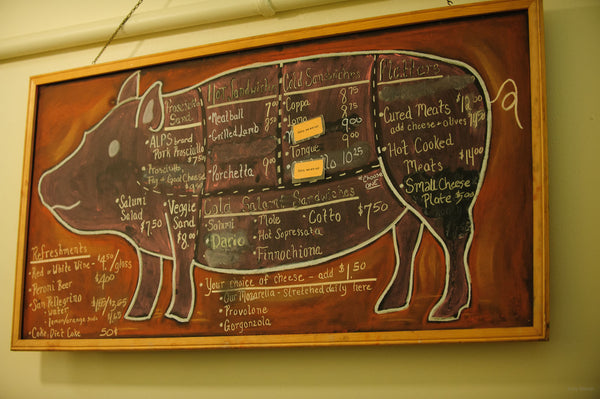 Prosciutto
Sand.
•ALPS brand
Pork Prosciutto
$7.50
•Prosciutto
Fig + Goat Cheese
9.00
Hot Sandwiches
•Meatball
•Grilled Lamb
•Porchetta
Cold Sandwiches
Coppa 8.75
8.75
9.00
Tongue 9.00
10.25
Platters
•Cured Meats $12.00
add cheese + olives
•Hot Cooked $14.00
Meats
•Small Cheese
Plate $5.00
•Salumi
Salad
$7.50
Veggie
Sand
$8.00
Cold Salami Sandwiches
•Choose
one
Salumi • Mole • Cotto $7.50
•Dario • Hot Sopressata
•Finnochiona
Your choice of cheese - add $1.50
•Our Mozarella - Stretched daily here
•Provolone
•Gorgonzola
Refreshments
•Red or White Wine - /glass
•Peroni Beer $4.00
•San Pellegrino
- water
- lemon/orange soda
•Coke, Diet Coke 50¢